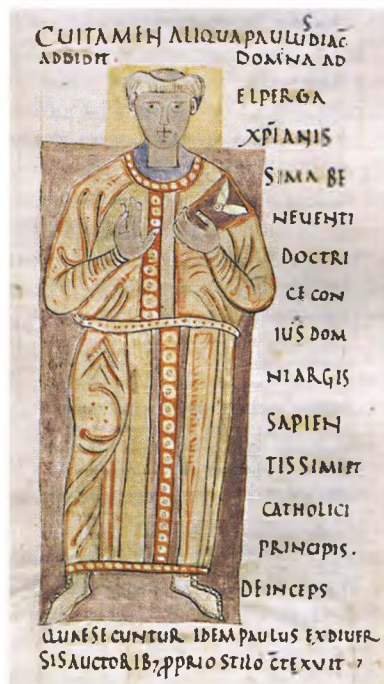 CUITAMEN ALIQUA PAULUS DIAC̄
ADDIDIT. DOMINA AD
ELPERGA
XP̄IANIS
SIMA BE
NEUENTI
DOCTRI
CE CON
IUS DOM
NI ARGIS
SAPIEN
TISSIMI ET
CATHOLICI
PRINCIPIS.
DEINCEPS
QUAE SECUNTUR IDEM PAULUS EX DIUER
SIS AUCTORIB; P̄PRIO STILO C̄TEXUIT